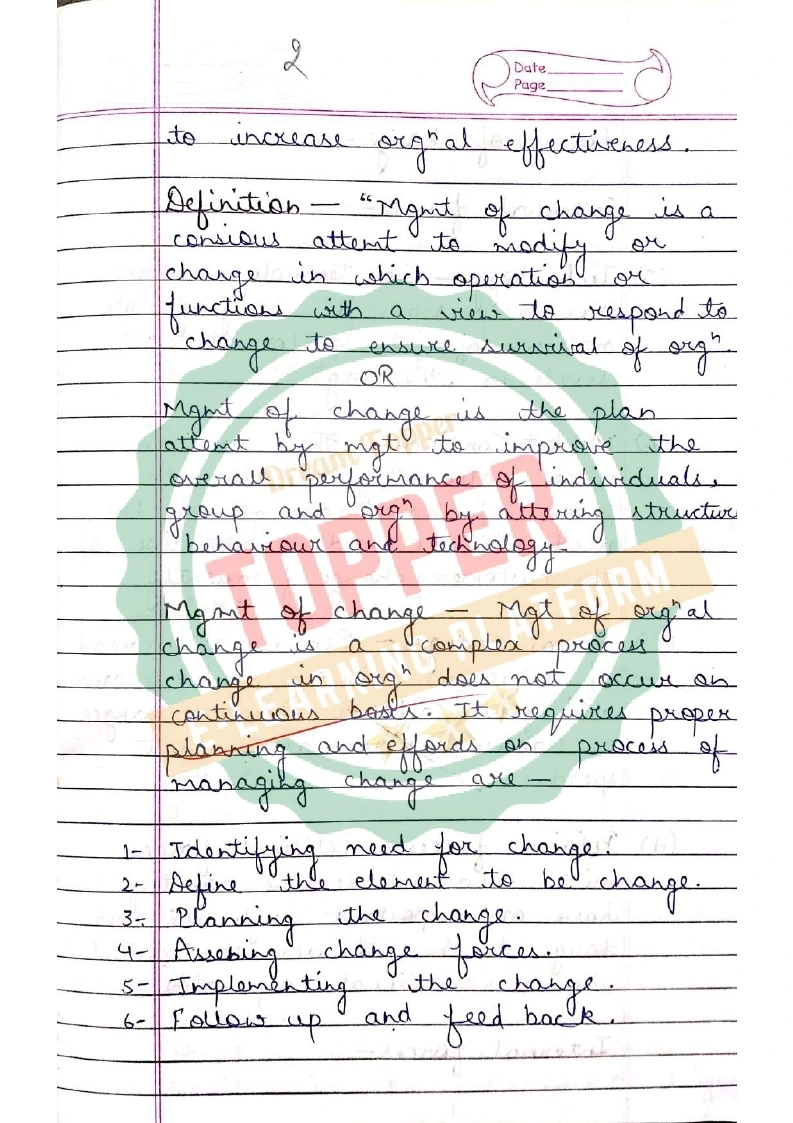 2
Date
Page
to increase orgⁿal effectiveness.
Definition — "Mgmt of change is a
consious attemt to modify or
change in which operation or
functions with a view to respond to
change to ensure survival of orgⁿ.
OR
Mgmt of change is the plan
attemt by mgt to improve the
overall performance of individuals,
group and orgⁿ by altering structur
behaviour and technology.
Mgmt of change — Mgt of orgⁿal
change is a complex process
change in orgⁿ does not occur on
continuous basis. It requires proper
planning and effords on process of
managing change are —
1- Identifying need for change.
2- Define the element to be change.
3- Planning the change.
4- Assesing change forces.
5- Implementing the change.
6- Follow up and feed back.
Dream Topper
TOPPER
E-LEARNING PLATFORM